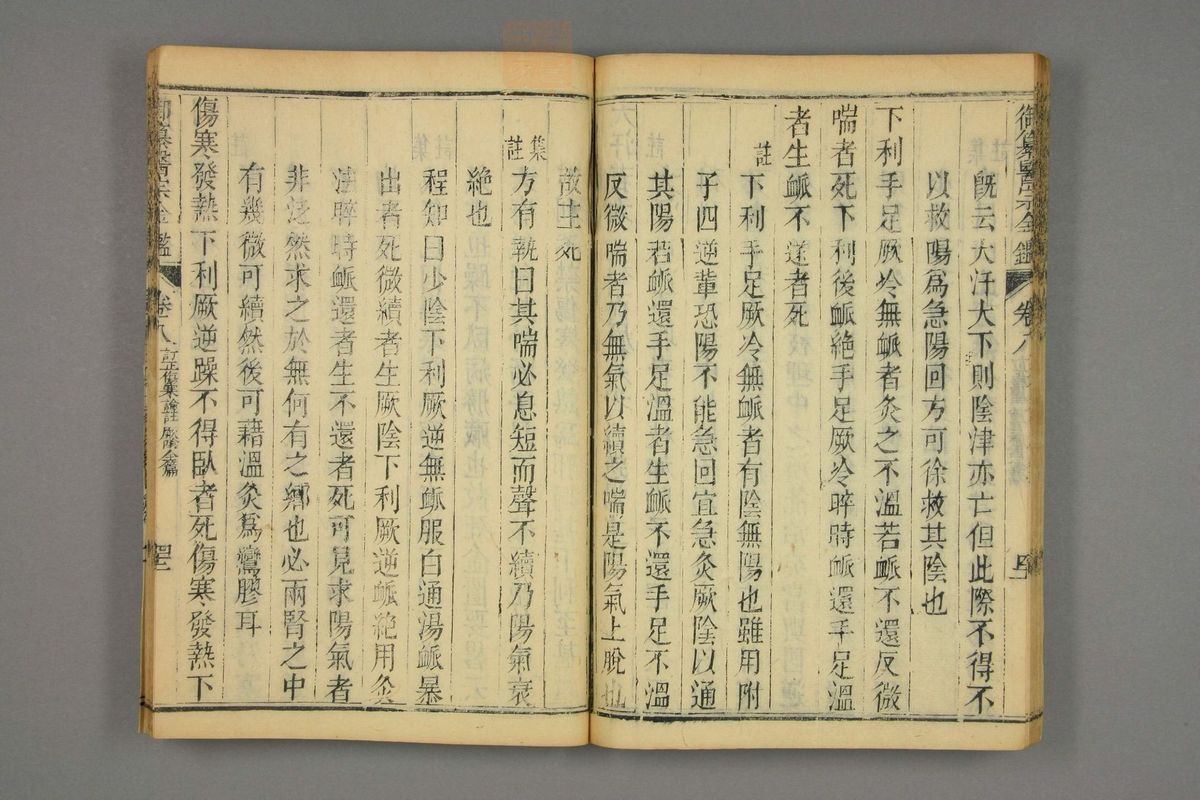 御纂醫宗金鑑 卷八
旣云大汗大下則陰津亦亡但此際不得不
以救陽為急陽回方可徐救其陰也
下利手足厥冷無脈者灸之不溫若脈不還反微
喘者死下利後脈絕手足厥冷晬時脈還手足溫
者生脈不還者死
註下利手足厥冷無脈者有陰無陽也雖用附
子四逆輩恐陽不能急回宜急灸厥陰以通
其陽若脈還手足溫者生脈不還手足不溫
反微喘者乃無氣以續之喘是陽氣上脫也
故主死
集註方有執曰其喘必息短而聲不續乃陽氣衰
絕也
程知曰少陰下利厥逆無脈服白通湯脈暴
出者死微續者生厥陰下利厥逆脈絕用灸
法晬時脈還者生不還者死可見求陽氣者
非泛然求之於無何有之鄉也必兩腎之中
有幾微可續然後可藉溫灸為鸞膠耳
傷寒發熱下利厥逆躁不得臥者死傷寒發熱下
御纂醫宗金鑑 卷八 訂正傷寒論註